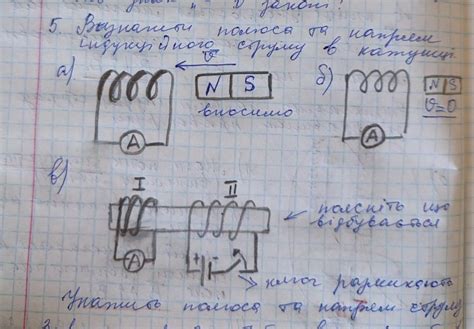 5. Визначити полюса та напрям
індукційного струму в катушці
а)
v
N S
вносимо
A
б)
N S
v=0
A
в)
I
II
A
+ -
поясніть що
відбувається
ключ размикають
Укажіть полюса та напрям струму